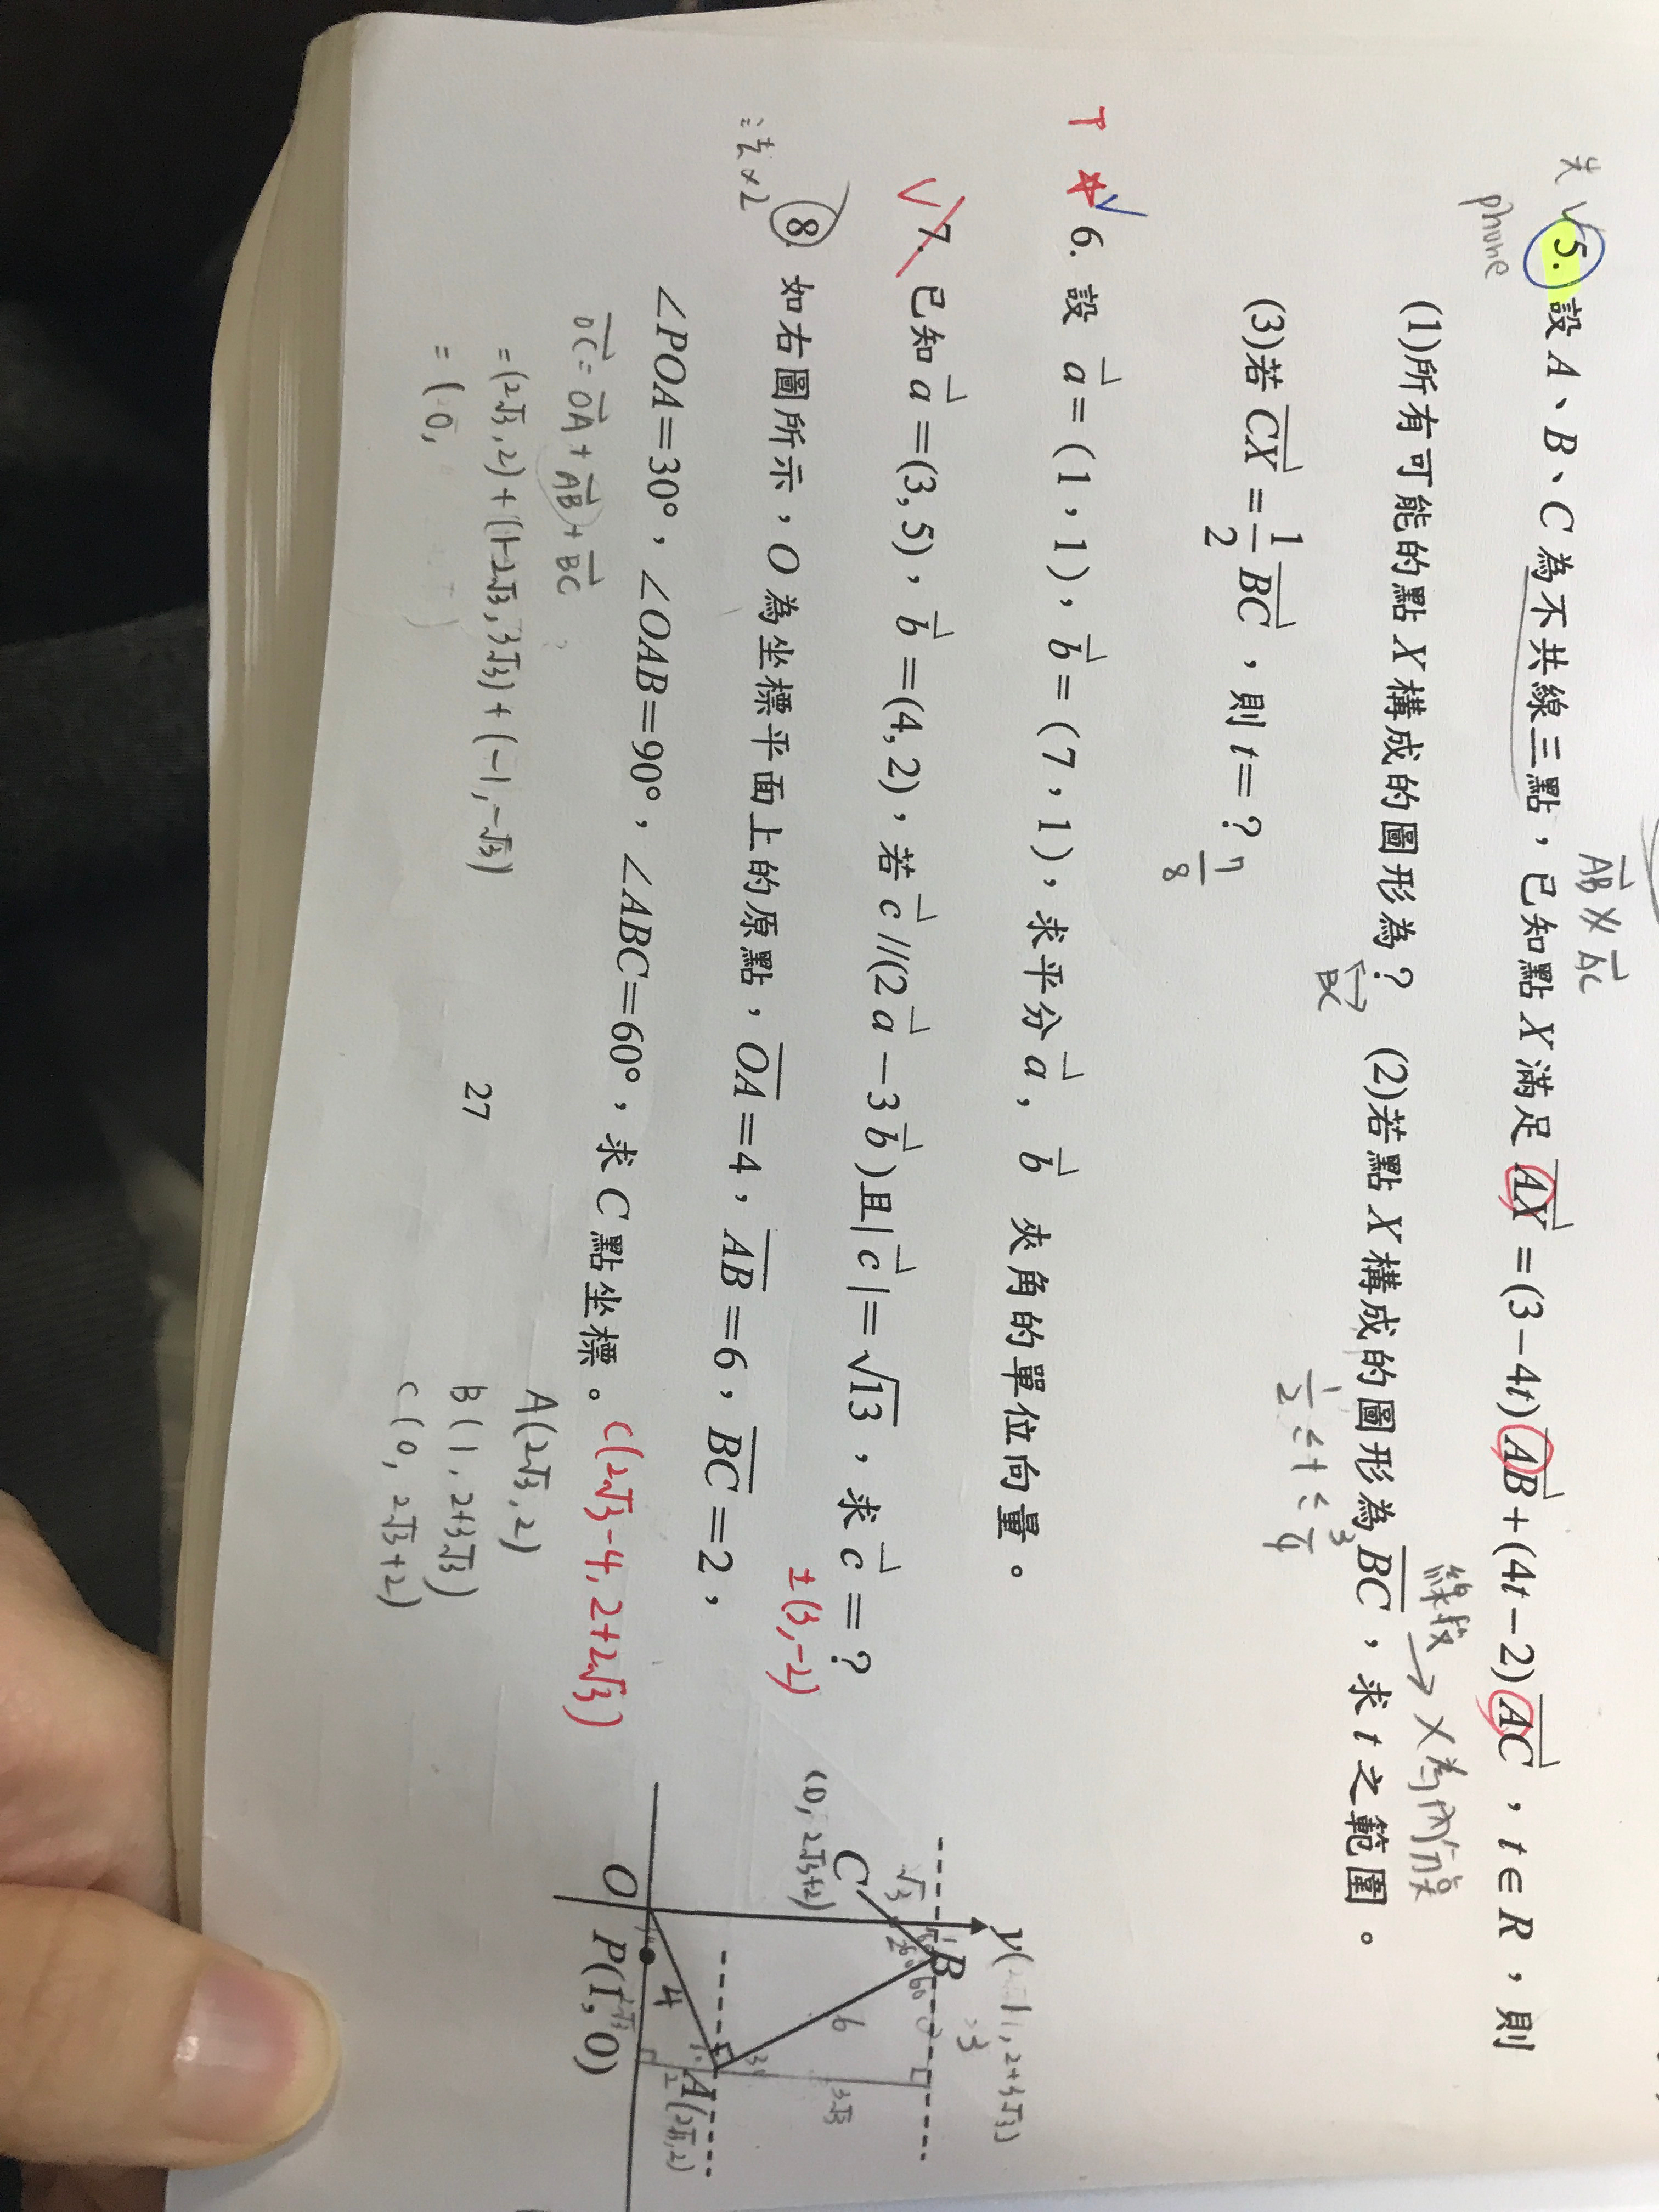 AB ∦ AC
失 ✓ 5. 設 A、B、C 為不共線三點，已知點 X 滿足 AX⃗ = (3 − 4t)AB⃗ + (4t − 2)AC⃗，t ∈ R，則
phone
線段 → X為
(1)所有可能的點 X 構成的圖形為？ (2)若點 X 構成的圖形為 BC，求 t 之範圍。
BC
1/2 ≤ t ≤ 3/4
(3)若 CX⃗ = 1/2 BC⃗，則 t = ？ 7/8
T ☆ ✓ 6. 設 a⃗ = (1，1)，b⃗ = (7，1)，求平分 a⃗，b⃗ 夾角的單位向量。
✓ 7. 已知 a⃗ = (3, 5)，b⃗ = (4, 2)，若 c⃗ // (2a⃗ − 3b⃗) 且 |c⃗| = √13，求 c⃗ = ？
±(3, −2)
8. 如右圖所示，O 為坐標平面上的原點，OA = 4，AB = 6，BC = 2，
法×2
∠POA = 30°，∠OAB = 90°，∠ABC = 60°，求 C 點坐標。 C(2√3−4, 2+2√3)
OC⃗ = OA⃗ + AB⃗ + BC⃗
= (2√3, 2) + (1−2√3, 3√3) + (−1, −√3)
= (0,
A(2√3, 2)
B(1, 2+3√3)
C(0, 2√3+2)
27
y
(1, 2+3√3)
B
C
(0, 2√3+2)
√3
60
6
3
3√3
4
A(2√3, 2)
2
O
P(1, 0)